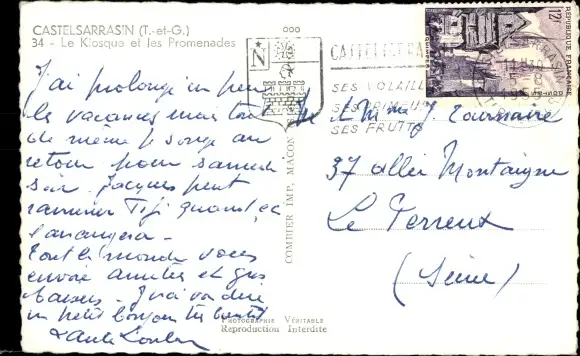 CASTELSARRASIN (T.-et-G.)
34 - Le Kiosque et les Promenades
J'ai prolongé un peu
les vacances mais tout
de même je songe au
retour pour samedi
soir. Jacques peut
ramener Tifi quand ça
l'arrangera -
Tout le monde vous
envoie amitiés et gros
baisers - J'irai vous dire
un petit bonjour très bientôt
COMBIER IMP. MACON
PHOTOGRAPHIE VÉRITABLE
Reproduction Interdite
N
SES VOLAILL
SES FRUITS
12F
QUIMPER
REPUBLIQUE FRANÇAISE
M. et Mme J. Tournaire
37 allée Montaigne
Le Perreux
(Seine)